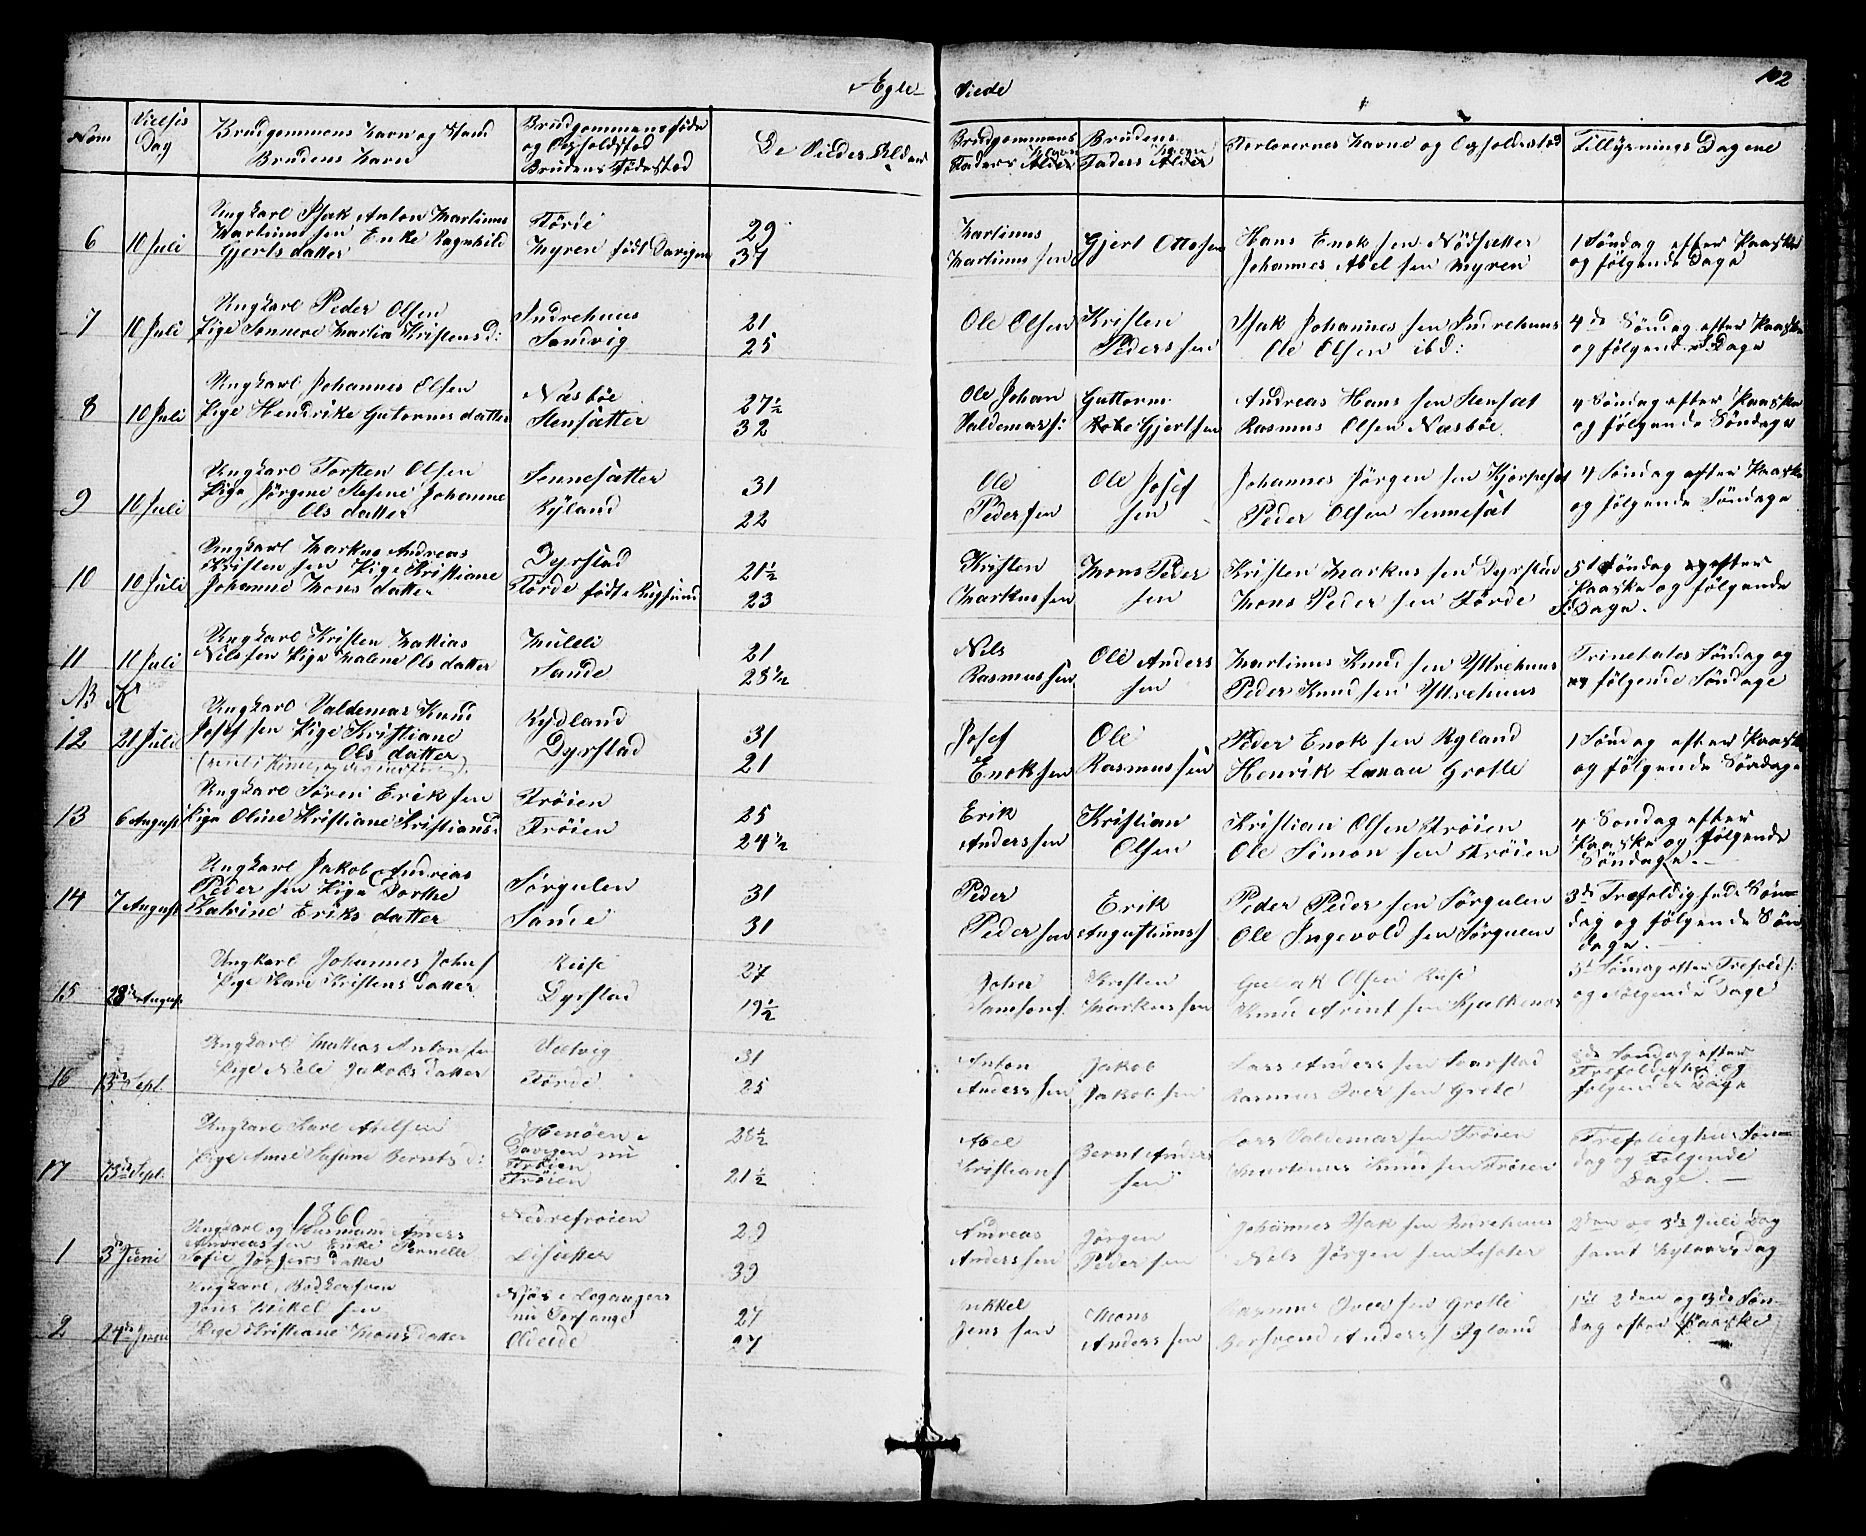 Ægte Viede
102
Nom
Vielses Dag
Brudgommens Navn og Stand
Brudens Navn
Brudgommens føde
og Opholdsted
Brudens Fødested
De Viedes Alder
Brudgommens Faders Navn
Brudens Faders Navn
Forlovernes Navne og Opholdssted
Tillysnings Dagene
6 10 Juli
Ungkarl Isak Anton Martinus
Martinussen Enke Ragnhild
Gjertsdatter
Førde
Myren født Davigen
29
37
Martinus
Martinussen
Gjert Ottosen
Hans Enoksen Nødsætter
Johannes Abelsen Myren
1 Søndag efter Paaske
og følgende Dage
7 10 Juli
Ungkarl Peder Olsen
Pige Marlia Kristensd:
Indrehuus
Sandvig
21
25
Ole Olsen
Kristen
Pederssen
Isak Johannessen Indrehuus
Ole Olsen ibd:
4de Søndag efter Paaske
og følgende S. Dage
8 10 Juli
Ungkarl Johannes Olsen
Pige Hendrikke Gutormsdatter
Næsbøe
Stensætter
27½
32
Ole Johan
Valdemars:
Guttorm
Gjertsen
Andreas Hanssen Stensæt
Rasmus Olsen Næsbøe
4 Søndag efter Paaske
og følgende Søndage
9 10 Juli
Ungkarl Torsten Olsen
Pige Jørgine Stefine Johanne
Olsdatter
Sennesætter
Ryland
31
22
Ole
Pedersen
Ole Josef
sen
Johannes Jørgensen
Peder Olsen Sennesæt
4 Søndag efter Paaske
og følgende Søndage
10 10 Juli
Ungkarl Markus Andreas
Kristensen Pige Kristiane
Johanne Monsdatter
Dyrstad
Førde født i Rugsund
21½
23
Kristen
Markussen
Mons Peder
sen
Kristen Markussen Dyrstad
Mons Pedersen Førde
5te Søndag efter
Paaske og følgende
S: Dage.
11 11 Juli
Ungkarl Kristen Mattias
Nilssen Pige Malene Olsdatter
Sande
21
28½
Nils
Rasmussen
Ole Anders
sen
Martinus Knudsen Yttrehuus
Peder Knudsen Yttrehuus
Trinetates Søndag og
følgende Søndage
NB
12 21 Juli
Ungkarl Valdemar Knud
Josefsen Pige Kristiane
Olsdatter
Rydland
Dyrstad
31
21
Josef
Enoksen
Ole
Rasmussen
Peder Enoksen Ryland
Henrik Lanau Grotle
1 Søndag efter Paaske
og følgende Søndage
13 6 August
Ungkarl Søren Eriksen
Pige Oline Kristiane Kristiansd:
Frøien
Frøien
25
24½
Erik
Anderssen
Kristian
Olsen
Kristian Olsen Frøien
Ole Simonsen Frøien
4 Søndag efter
Paaske og følgende
Søndage.
14 7 August
Ungkarl Jakob Andreas
Pedersen Pige Dorthe
Katrine Eriksdatter
Sørgulen
Sande
31
31
Peder
Pedersen
Erik
Augustinuss
Peder Pedersen Sørgulen
Ole Ingevoldsen Sørgulen
3de Trefoldigheds Søn-
dag og følgende Søn
dage.
15 28de August
Ungkarl Johannes Johns
Pige Kari Kristensdatter
Ruse
Dyrstad
27
19½
John
Samsons.
Kristen
Markussen
Gulak Olsen Ruse
Knud Arentsen
5te Søndag efter Trefolds:
og følgende Dage
16 13de Sept.
Ungkarl Mathias Antonsen
Pige Nele Jakobsdatter
Førde
31
25
Anton
Anderssen
Jakob
Jakobsen
Lars Anderssen
Rasmus Iversen Grotle
Søndag efter
Trefoldighed og
følgende Dage
17 13de Sept.
Ungkarl Karl Abelsen
Pige Anne Berntsd:
Henøen i
Davigen nu
Frøien
Frøien
28½
21½
Abel
Kristians
Bernt Anders
sen
Lars Valdemarsen Frøien
Martinus Knudsen Frøien
Trefoldighus Søn-
dag og følgende
Dage.
1860
1 3de Juni
Ungkarl og Husmand Anders
Andreassen Enke Pernelle
Sofie Jørgensdatter
Nedrefrøien
29
39
Andreas
Anderssen
Jørgen
Pedersen
Johannes Isaksen
Nils Jørgensen
2den og 3de Juli Dag
samt Nytaarsdag
2 24de Juni
Ungkarl, Bødkersvend
Jens Mikelsen
Pige Kristiane Monsdatter
Njøs i Leganger
nu
Oldeide
27
27
Mikkel
Jenssen
Mons
Anderssen
Rasmus Iversen Grotle
Berhrend Anderss Igland
1ste 2den og 3de Søn-
dag efter Paaske